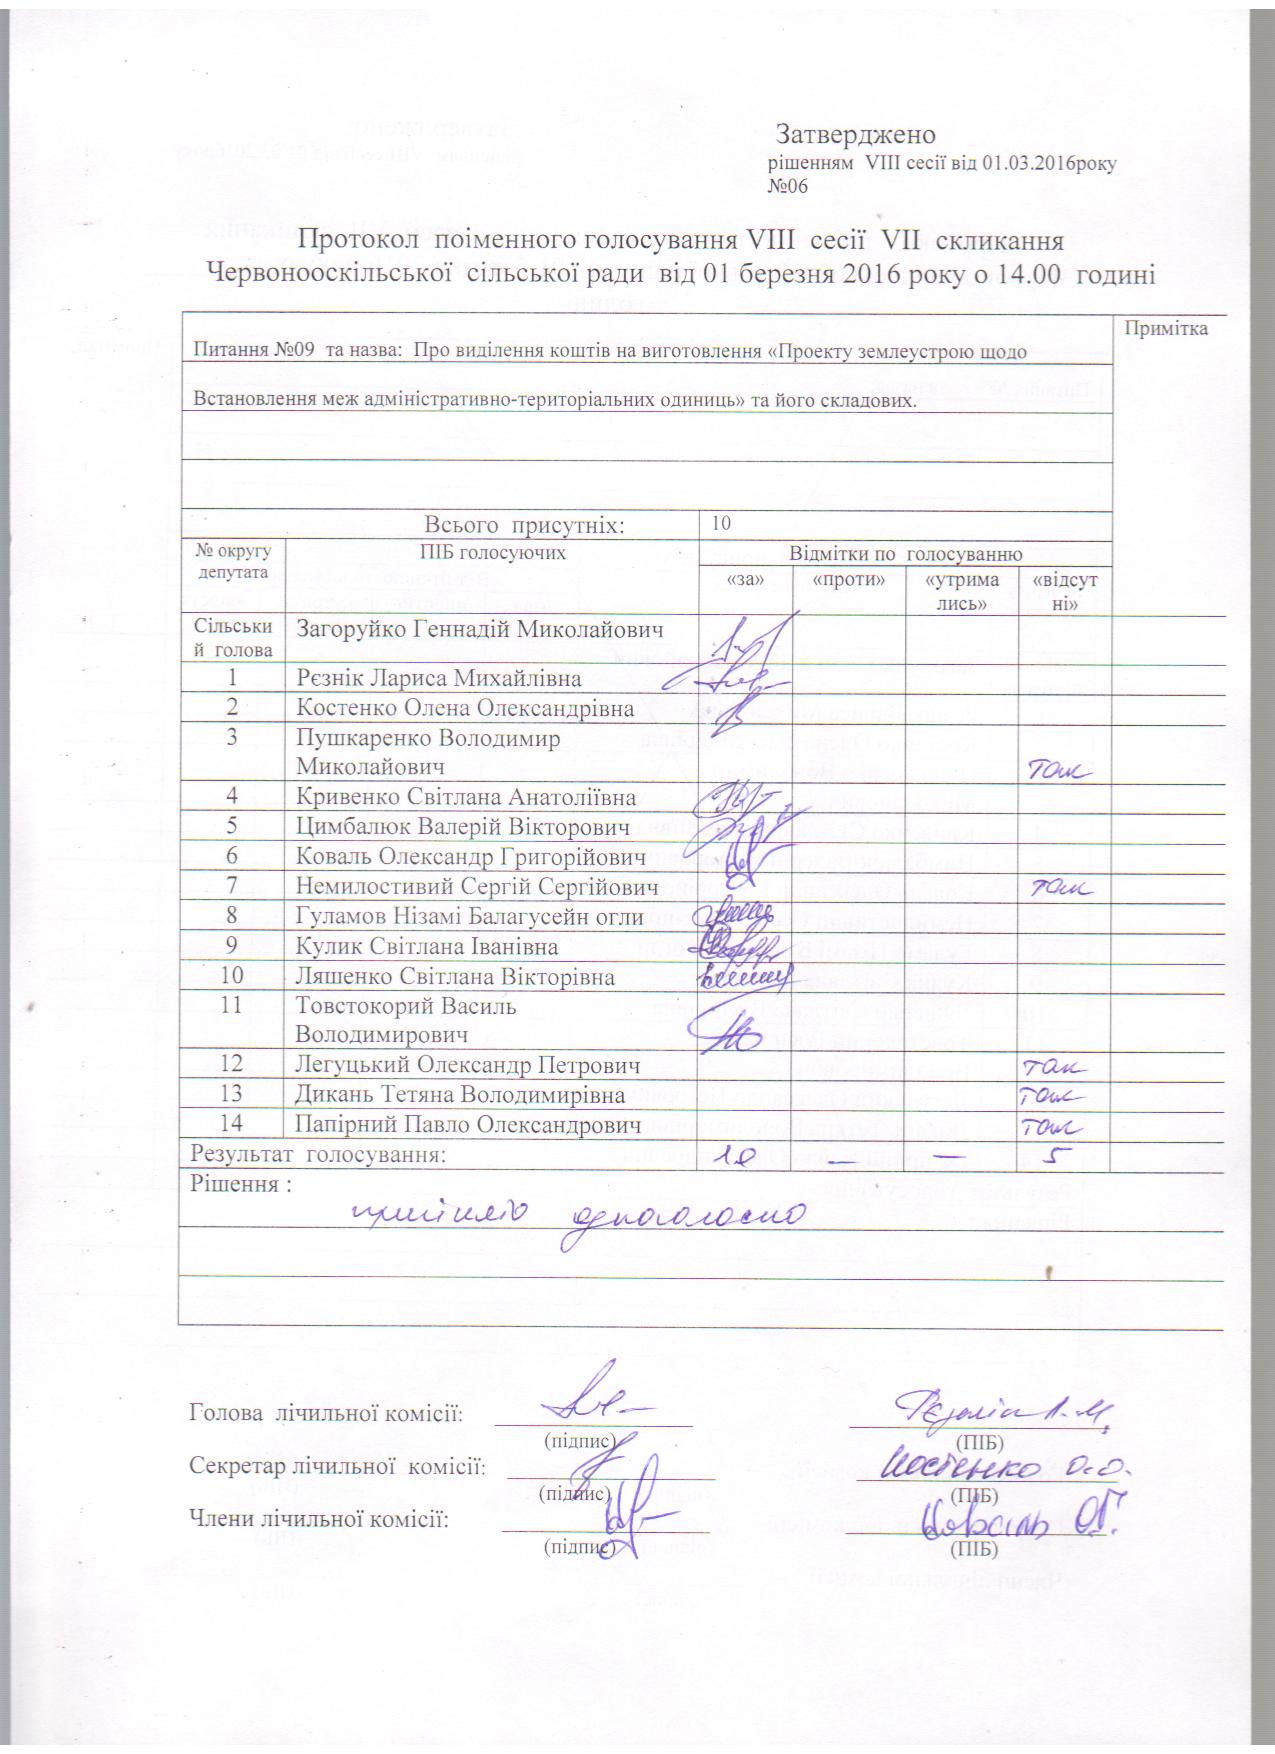 Затверджено
рішенням VIII сесії від 01.03.2016року
№06
Протокол поіменного голосування VIII сесії VII скликання
Червонооскільської сільської ради від 01 березня 2016 року о 14.00 годині
Примітка
Питання №09 та назва: Про виділення коштів на виготовлення «Проекту землеустрою щодо
Встановлення меж адміністративно-територіальних одиниць» та його складових.
Всього присутніх: 10
№ округу депутата ПІБ голосуючих Відмітки по голосуванню
«за» «проти» «утрима лись» «відсут ні»
Сільськи й голова Загоруйко Геннадій Миколайович
1 Рєзнік Лариса Михайлівна
2 Костенко Олена Олександрівна
3 Пушкаренко Володимир
Миколайович так
4 Кривенко Світлана Анатоліївна
5 Цимбалюк Валерій Вікторович
6 Коваль Олександр Григорійович
7 Немилостивий Сергій Сергійович так
8 Гуламов Нізамі Балагусейн огли
9 Кулик Світлана Іванівна
10 Ляшенко Світлана Вікторівна
11 Товстокорий Василь
Володимирович
12 Легуцький Олександр Петрович так
13 Дикань Тетяна Володимирівна так
14 Папірний Павло Олександрович так
Результат голосування: 10 — — 5
Рішення :
прийнято одноголосно
Голова лічильної комісії: Рєзнік Л.М.
(підпис) (ПІБ)
Секретар лічильної комісії: Костенко О.О.
(підпис) (ПІБ)
Члени лічильної комісії: Коваль О.Г.
(підпис) (ПІБ)